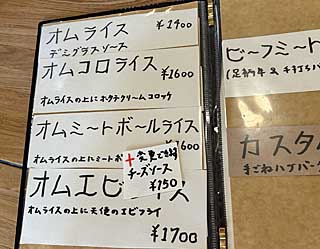 オムライス ¥1400
デミグラスソース
オムコロライス ¥1600
オムライスの上にホタテクリームコロッケ
オムミートボールライス
オムライスの上にミートボ ¥1600
+変更できます
チーズソース
¥150
オムエビ イス
オムライスの上に天使のエビフライ
¥1700
ビーフミート
カスタ
手ごねハンバーグ